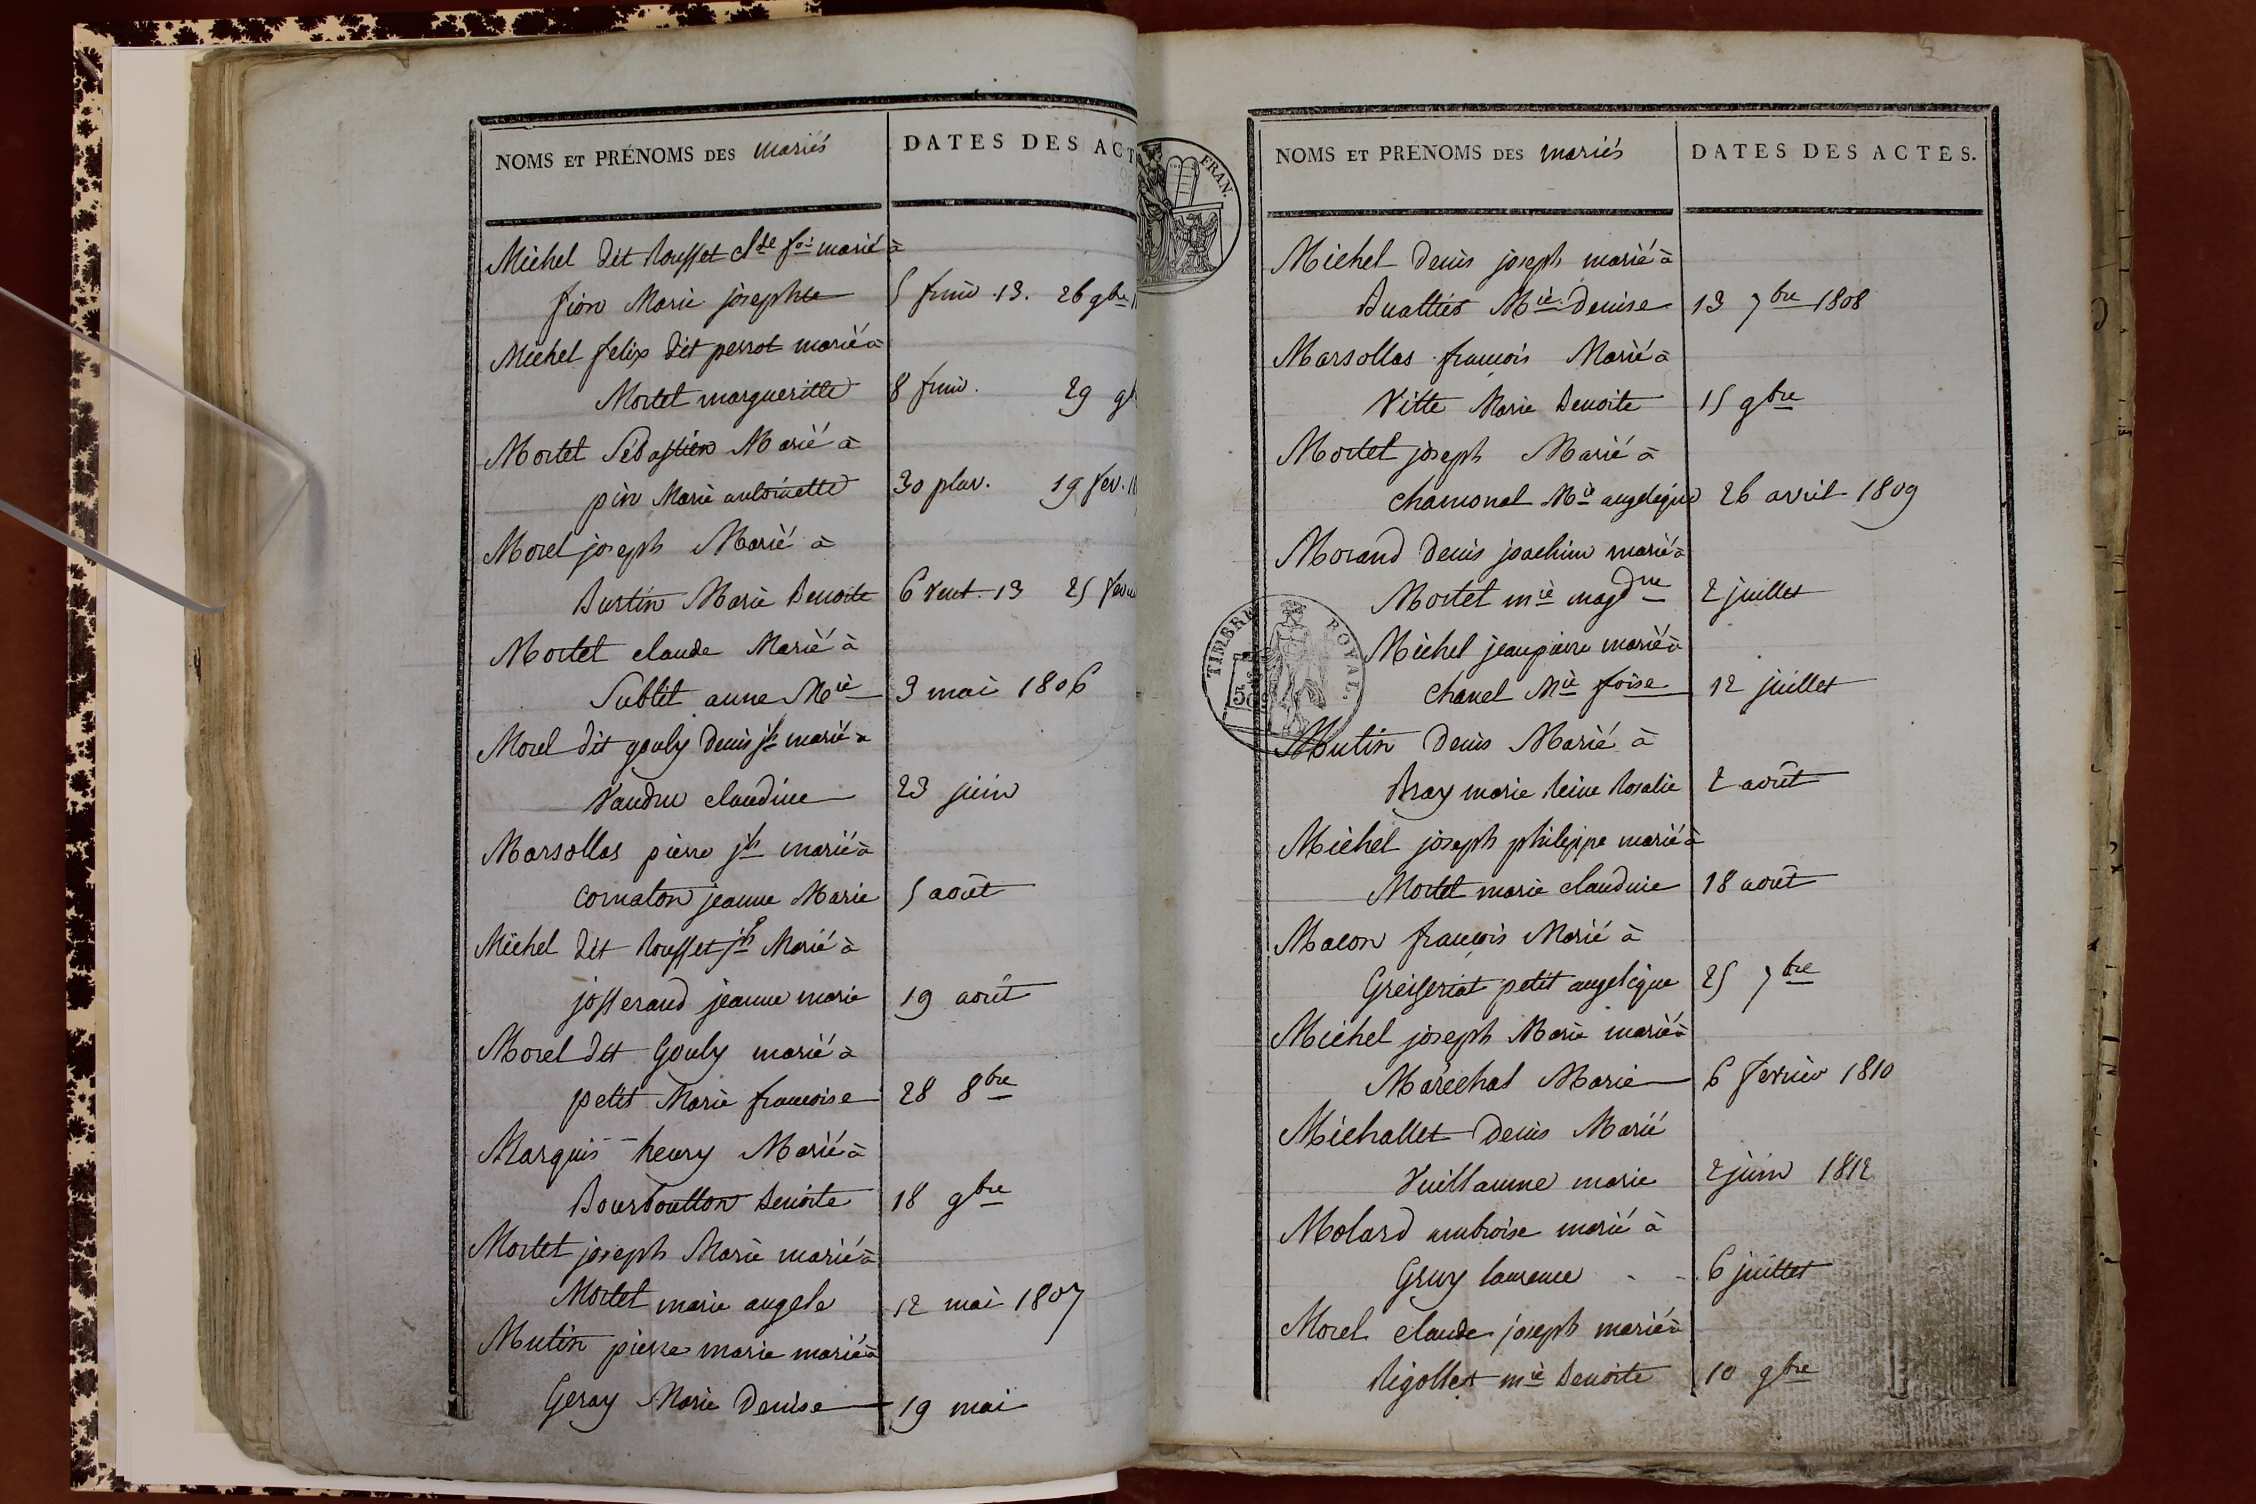 NOMS ET PRÉNOMS DES mariés
DATES DES ACT
Michel dit Rousset Cl.de f.ois marié à
fion Marie josephte 5 frim. 13. 26 9bre
Michel felix dit perrot marié à
Mortel margueritte 8 frim. 29
Mortel Sébastien Marié à
pin Marie antoinette 30 pluv. 19 fev.
Morel joseph Marié à
Burtin Marie Benoite 6 vent. 13 25
Mortel claude Marié à
Sublit anne Mie 3 mai 1806
Morel dit gouly denis jh marié à
Vaudru claudine 23 juin
Marsollas pierre jh marié à
cornaton jeanne Marie 5 août
Michel dit Rousset jh Marié à
josserand jeanne marie 19 août
Morel dit Gouly marié à
petit Marie francoise 28 8bre
Marquis henry Marié à
Bourboullon Benoite 18 9bre
Mortel joseph Marie marié à
Mortel marie angele 12 mai 1807
Mutin pierre marie marié à
Geray Marie Denise 19 mai
FRAN.
NOMS ET PRÉNOMS DES mariés
DATES DES ACTES.
Michel denis joseph marié à
Buattier Mie Denise 13 7bre 1808
Marsollas françois Marié à
Vitte Marie Benoite 15 9bre
Mortel joseph Marié à
chamonal Mie angelique 26 avril 1809
Morand denis joachim marié à
Mortel mie magdne 2 juillet
Michel jean pierre marié à
chanel Mie foise 12 juillet
TIMBRE ROYAL.
Mutin Denis Marié à
Bray marie Reine Rosalie 2 août
Michel joseph philippe marié à
Mortel marie claudine 18 août
Macon françois Marié à
Greiseriat petit angelique 25 7bre
Michel joseph Marie marié à
Maréchal Marie 6 fevrier 1810
Michallet Denis Marié
Vuillaume marie 2 juin 1812
Molard ambroise marié à
Gruy laurence 6 juillet
Morel claude joseph marié à
Rigollet mie Benoite 10 9bre